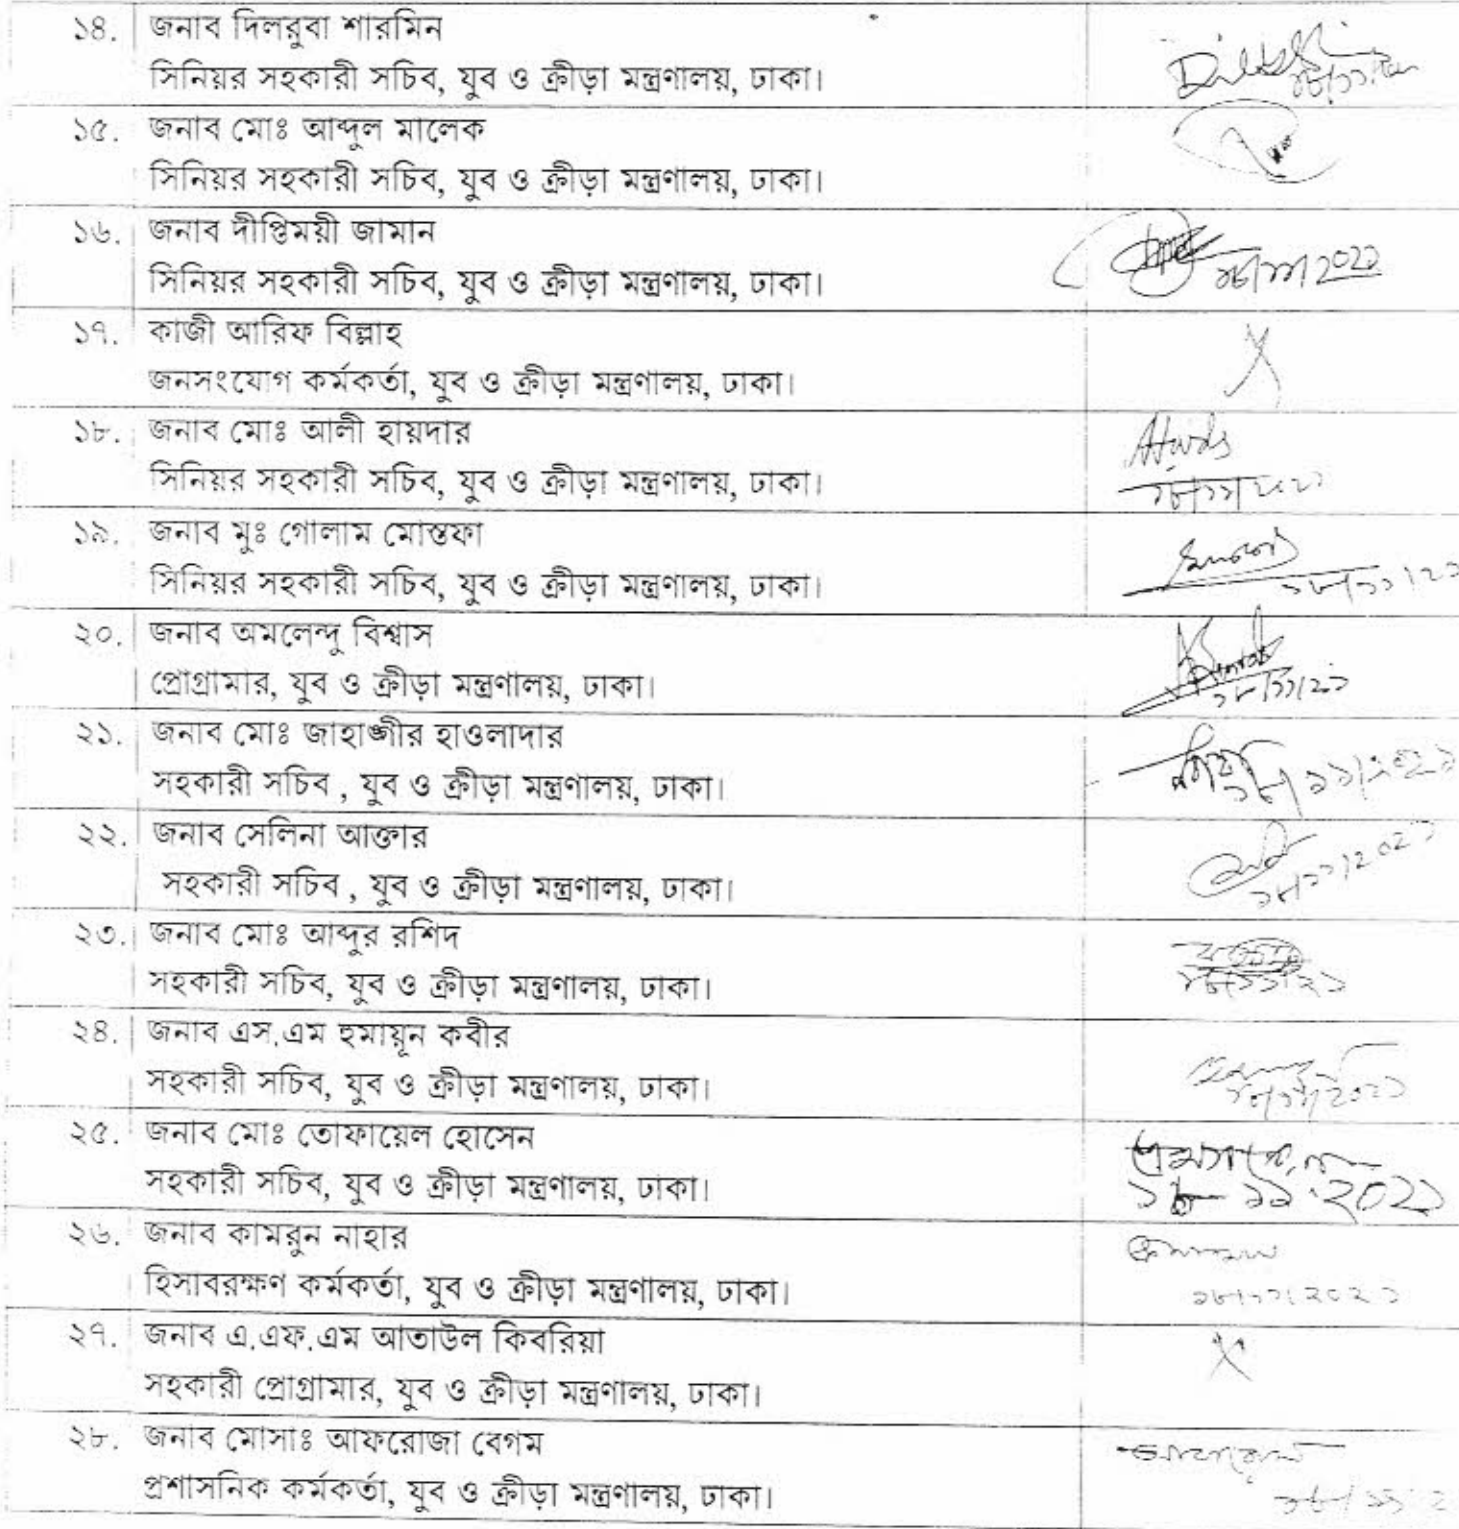 ১৪. জনাব দিলরুবা শারমিন
সিনিয়র সহকারী সচিব, যুব ও ক্রীড়া মন্ত্রণালয়, ঢাকা।
১৫. জনাব মোঃ আব্দুল মালেক
সিনিয়র সহকারী সচিব, যুব ও ক্রীড়া মন্ত্রণালয়, ঢাকা।
১৬. জনাব দীপ্তিময়ী জামান
সিনিয়র সহকারী সচিব, যুব ও ক্রীড়া মন্ত্রণালয়, ঢাকা। ১৮/১১/2021
১৭. কাজী আরিফ বিল্লাহ
জনসংযোগ কর্মকর্তা, যুব ও ক্রীড়া মন্ত্রণালয়, ঢাকা।
১৮. জনাব মোঃ আলী হায়দার
সিনিয়র সহকারী সচিব, যুব ও ক্রীড়া মন্ত্রণালয়, ঢাকা।
১৯. জনাব মুঃ গোলাম মোস্তফা
সিনিয়র সহকারী সচিব, যুব ও ক্রীড়া মন্ত্রণালয়, ঢাকা।
২০. জনাব অমলেন্দু বিশ্বাস
প্রোগ্রামার, যুব ও ক্রীড়া মন্ত্রণালয়, ঢাকা। ১৮/১১/২১
২১. জনাব মোঃ জাহাঙ্গীর হাওলাদার
সহকারী সচিব , যুব ও ক্রীড়া মন্ত্রণালয়, ঢাকা। ১৮/১১/২০২১
২২. জনাব সেলিনা আক্তার
সহকারী সচিব , যুব ও ক্রীড়া মন্ত্রণালয়, ঢাকা। ১৮/১১/২০২১
২৩. জনাব মোঃ আব্দুর রশিদ
সহকারী সচিব, যুব ও ক্রীড়া মন্ত্রণালয়, ঢাকা। ১৮/১১/২১
২৪. জনাব এস.এম হুমায়ূন কবীর
সহকারী সচিব, যুব ও ক্রীড়া মন্ত্রণালয়, ঢাকা। ১৮/১১/২০২১
২৫. জনাব মোঃ তোফায়েল হোসেন
সহকারী সচিব, যুব ও ক্রীড়া মন্ত্রণালয়, ঢাকা। ১৮-১১-২০২১
২৬. জনাব কামরুন নাহার
হিসাবরক্ষণ কর্মকর্তা, যুব ও ক্রীড়া মন্ত্রণালয়, ঢাকা। ১৮/১১/২০২১
২৭. জনাব এ.এফ.এম আতাউল কিবরিয়া
সহকারী প্রোগ্রামার, যুব ও ক্রীড়া মন্ত্রণালয়, ঢাকা।
২৮. জনাব মোসাঃ আফরোজা বেগম
প্রশাসনিক কর্মকর্তা, যুব ও ক্রীড়া মন্ত্রণালয়, ঢাকা।